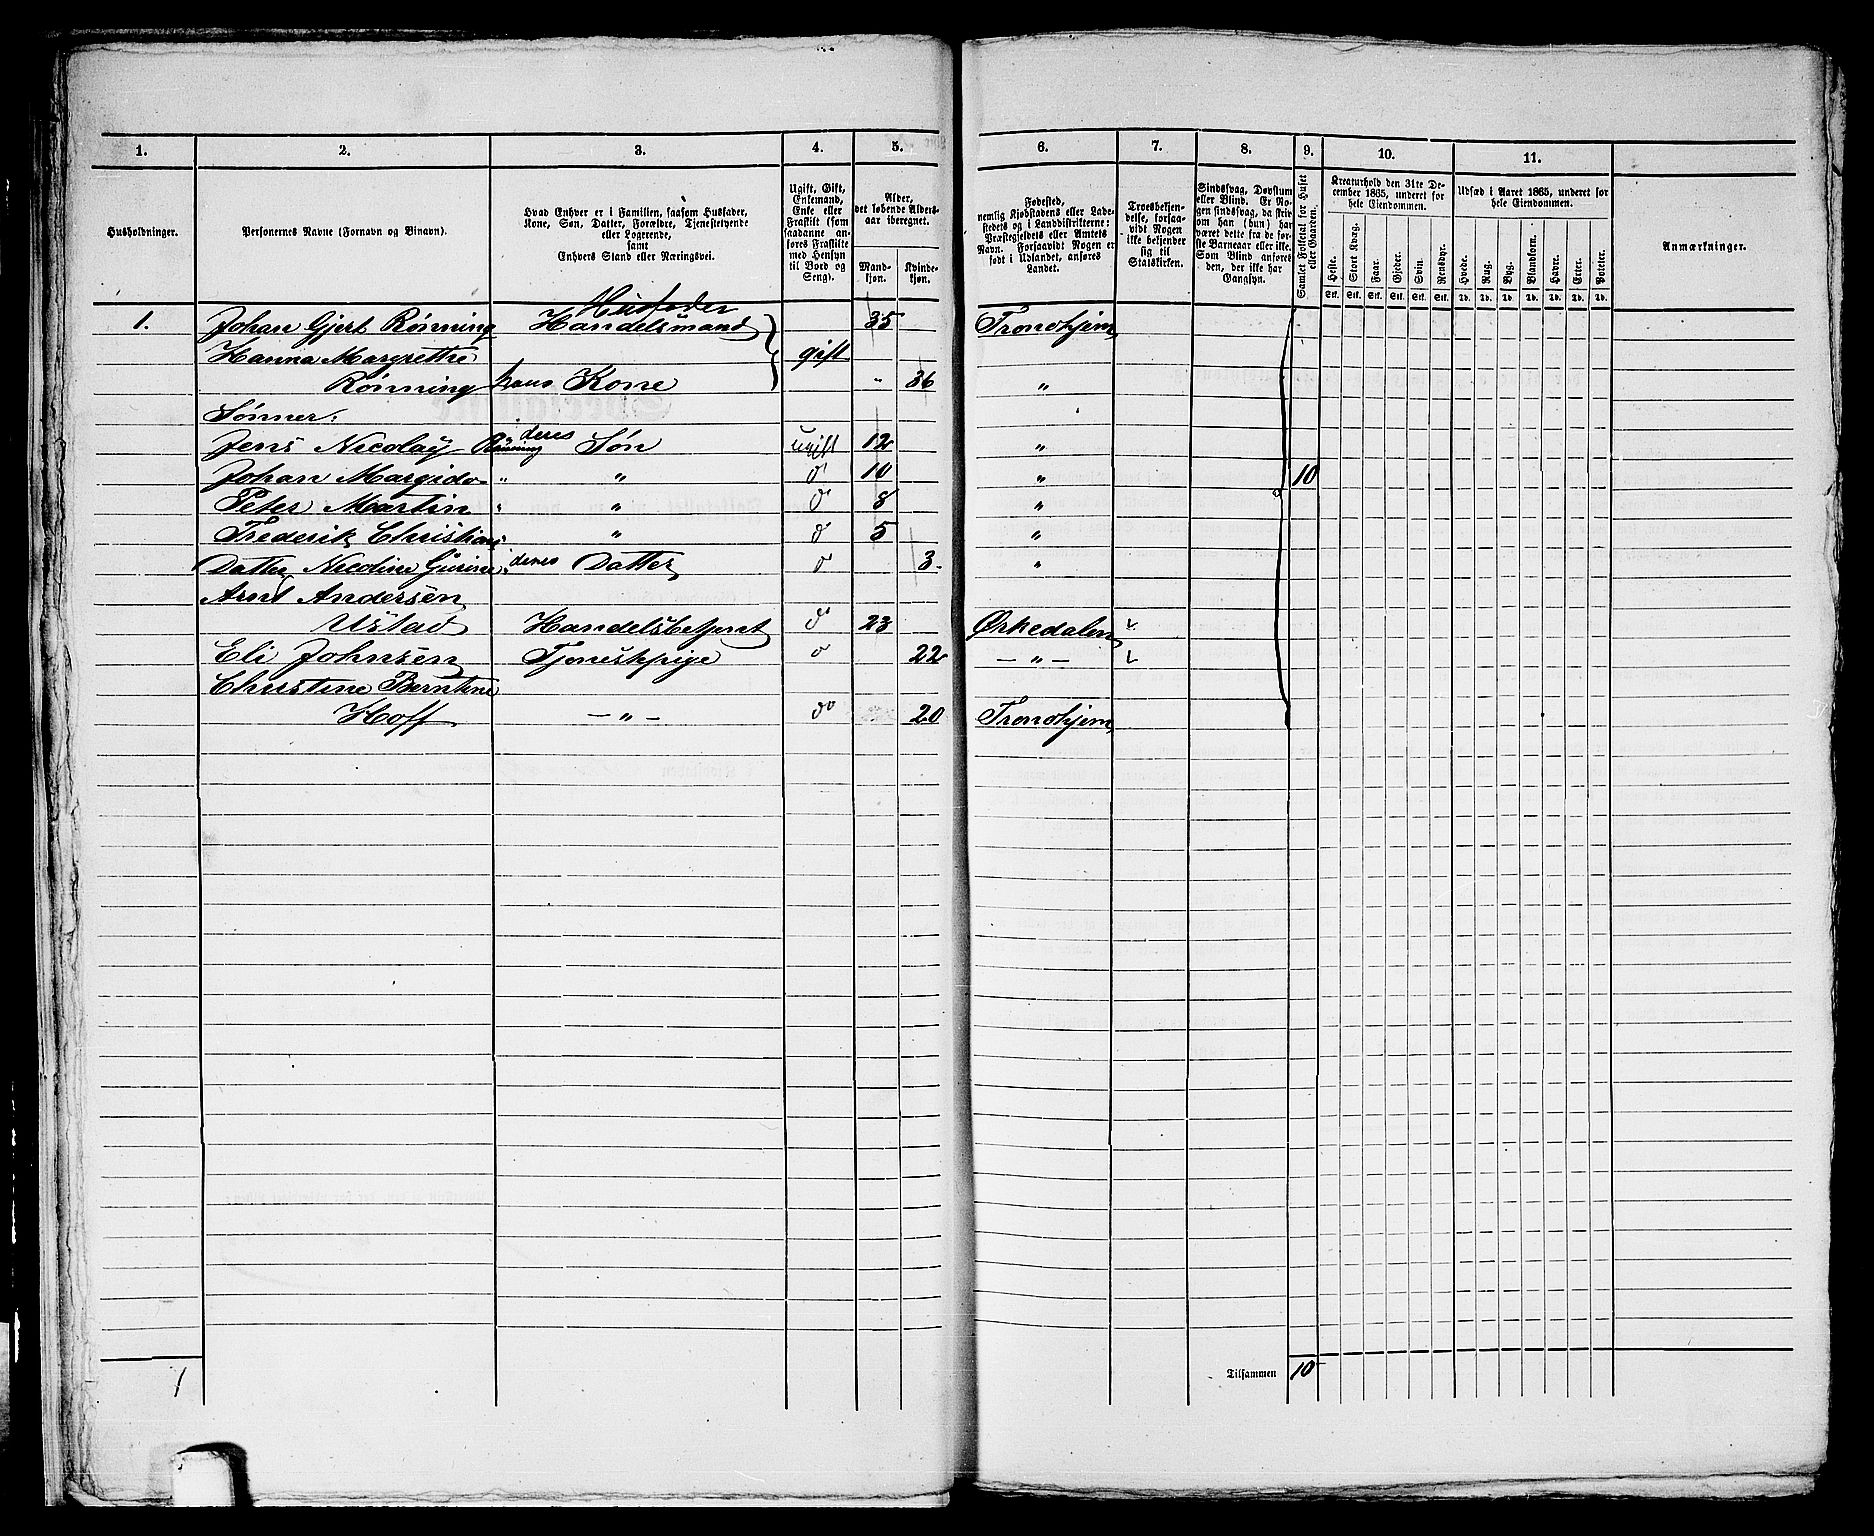 1. 2. 3. 4. 5. 6. 7. 8. 9. 10. 11.
Husholdninger.
Personernes Navne (Fornavn og Binavn).
Hvad Enhver er i Familien, saasom Husfader,
Kone, Søn, Datter, Forældre, Tjenestetyende
eller Logerende,
samt
Enhvers Stand eller Næringsvei.
Ugift, Gift,
Enkemand,
Enke eller
Fraskilt (som
saadanne an-
føres Fraskilte
med Hensyn
til Bord og
Seng).
Alder,
det løbende Alders-
aar iberegnet.
Mand-
kjøn.
Kvinde-
kjøn.
Fødested,
nemlig Kjøbstadens eller Lade-
stedets og i Landdistrikterne:
Præstegjeldets eller Amtets
Navn. Forsaavidt Nogen er
født i Udlandet, anføres
Landet.
Troesbekjen-
delse, forsaa-
vidt Nogen
ikke bekjender
sig til
Statskirken.
Sindssvag, Døvstum
eller Blind. Er No-
gen sindssvag, da skriv
om han (hun) har
været dette fra de før-
ste Barneaar eller ikke.
Som Blind anføres
den, der ikke har
Gangsyn.
Samlet Folketal for Huset
eller Gaarden.
Kreaturhold den 31te De-
cember 1865, underet for
hele Eiendommen.
Heste. Stort Kvæg. Faar. Gjeder. Svin. Rensdyr.
Stk. Stk. Stk. Stk. Stk. Stk.
Udsæd i Aaret 1865, underet for
hele Eiendommen.
Hvede. Rug. Byg. Blandkorn. Havre. Erter. Poteter.
Td. Td. Td. Td. Td. Td. Td.
Anmærkninger.
Husfader
1. Johan Gjert Rønning Handelsmand 35 Trondhjem
Hanna Margrethe gift
Rønning hans Kone " 36 "
Sønner:
Jens Nicolay Rønning deres Søn ugift 12 "
Johan Margido " " do 10 " 10
Peter Martin " " do 8 "
Frederik Christian " do 5 "
Datter Nicoline Gurine deres Datter do 3 "
Arnt Andersen
Ustad Handelsbetjent do 23 Ørkedalen
Eli Johnsen Tjenestepige do 22 — " —
Christine Berntine
Hoff — " — do 20 Trondhjem
1 Tilsammen 10